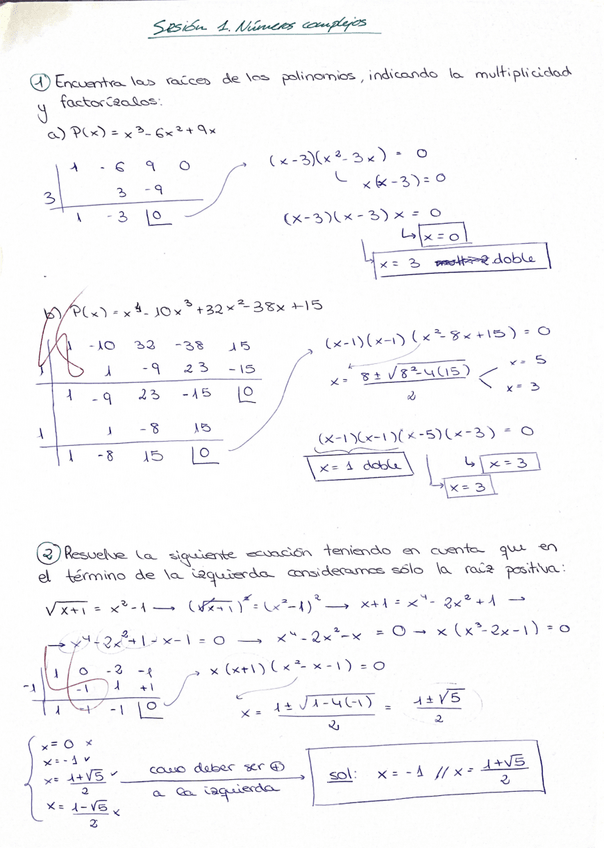 Sesión 1. Números complejos
① Encuentra las raíces de los polinomios, indicando la multiplicidad
y factorízalos:
a) P(x) = x³-6x²+9x
1 -6 9 0
3 3 -9
1 -3 0
(x-3)(x²-3x) = 0
x(x-3)=0
(x-3)(x-3)x = 0
x=0
x=3 doble
b) P(x) = x⁴-10x³+32x²-38x+15
1 -10 32 -38 15
1 -9 23 -15
1 -9 23 -15 0
1 1 -8 15
1 -8 15 0
(x-1)(x-1)(x²-8x+15) = 0
x = (8±√(8²-4(15)))/2
x=5
x=3
(x-1)(x-1)(x-5)(x-3) = 0
x=1 doble
x=3
x=3
② Resuelve la siguiente ecuación teniendo en cuenta que en
el término de la izquierda consideramos sólo la raíz positiva:
√(x+1) = x²-1 → (√(x+1))² = (x²-1)² → x+1 = x⁴-2x²+1 →
→ x⁴-2x²+1-x-1=0 → x⁴-2x²-x = 0 → x(x³-2x-1)=0
1 0 -2 -1
-1 -1 1 +1
1 -1 -1 0
x(x+1)(x²-x-1)=0
x = (1±√(1-4(-1)))/2 = (1±√5)/2
x=0 x
x=-1 ✓
x=(1+√5)/2 ✓
x=(1-√5)/2 x
como deber ser ⊕
a la izquierda
sol: x=-1 // x=(1+√5)/2